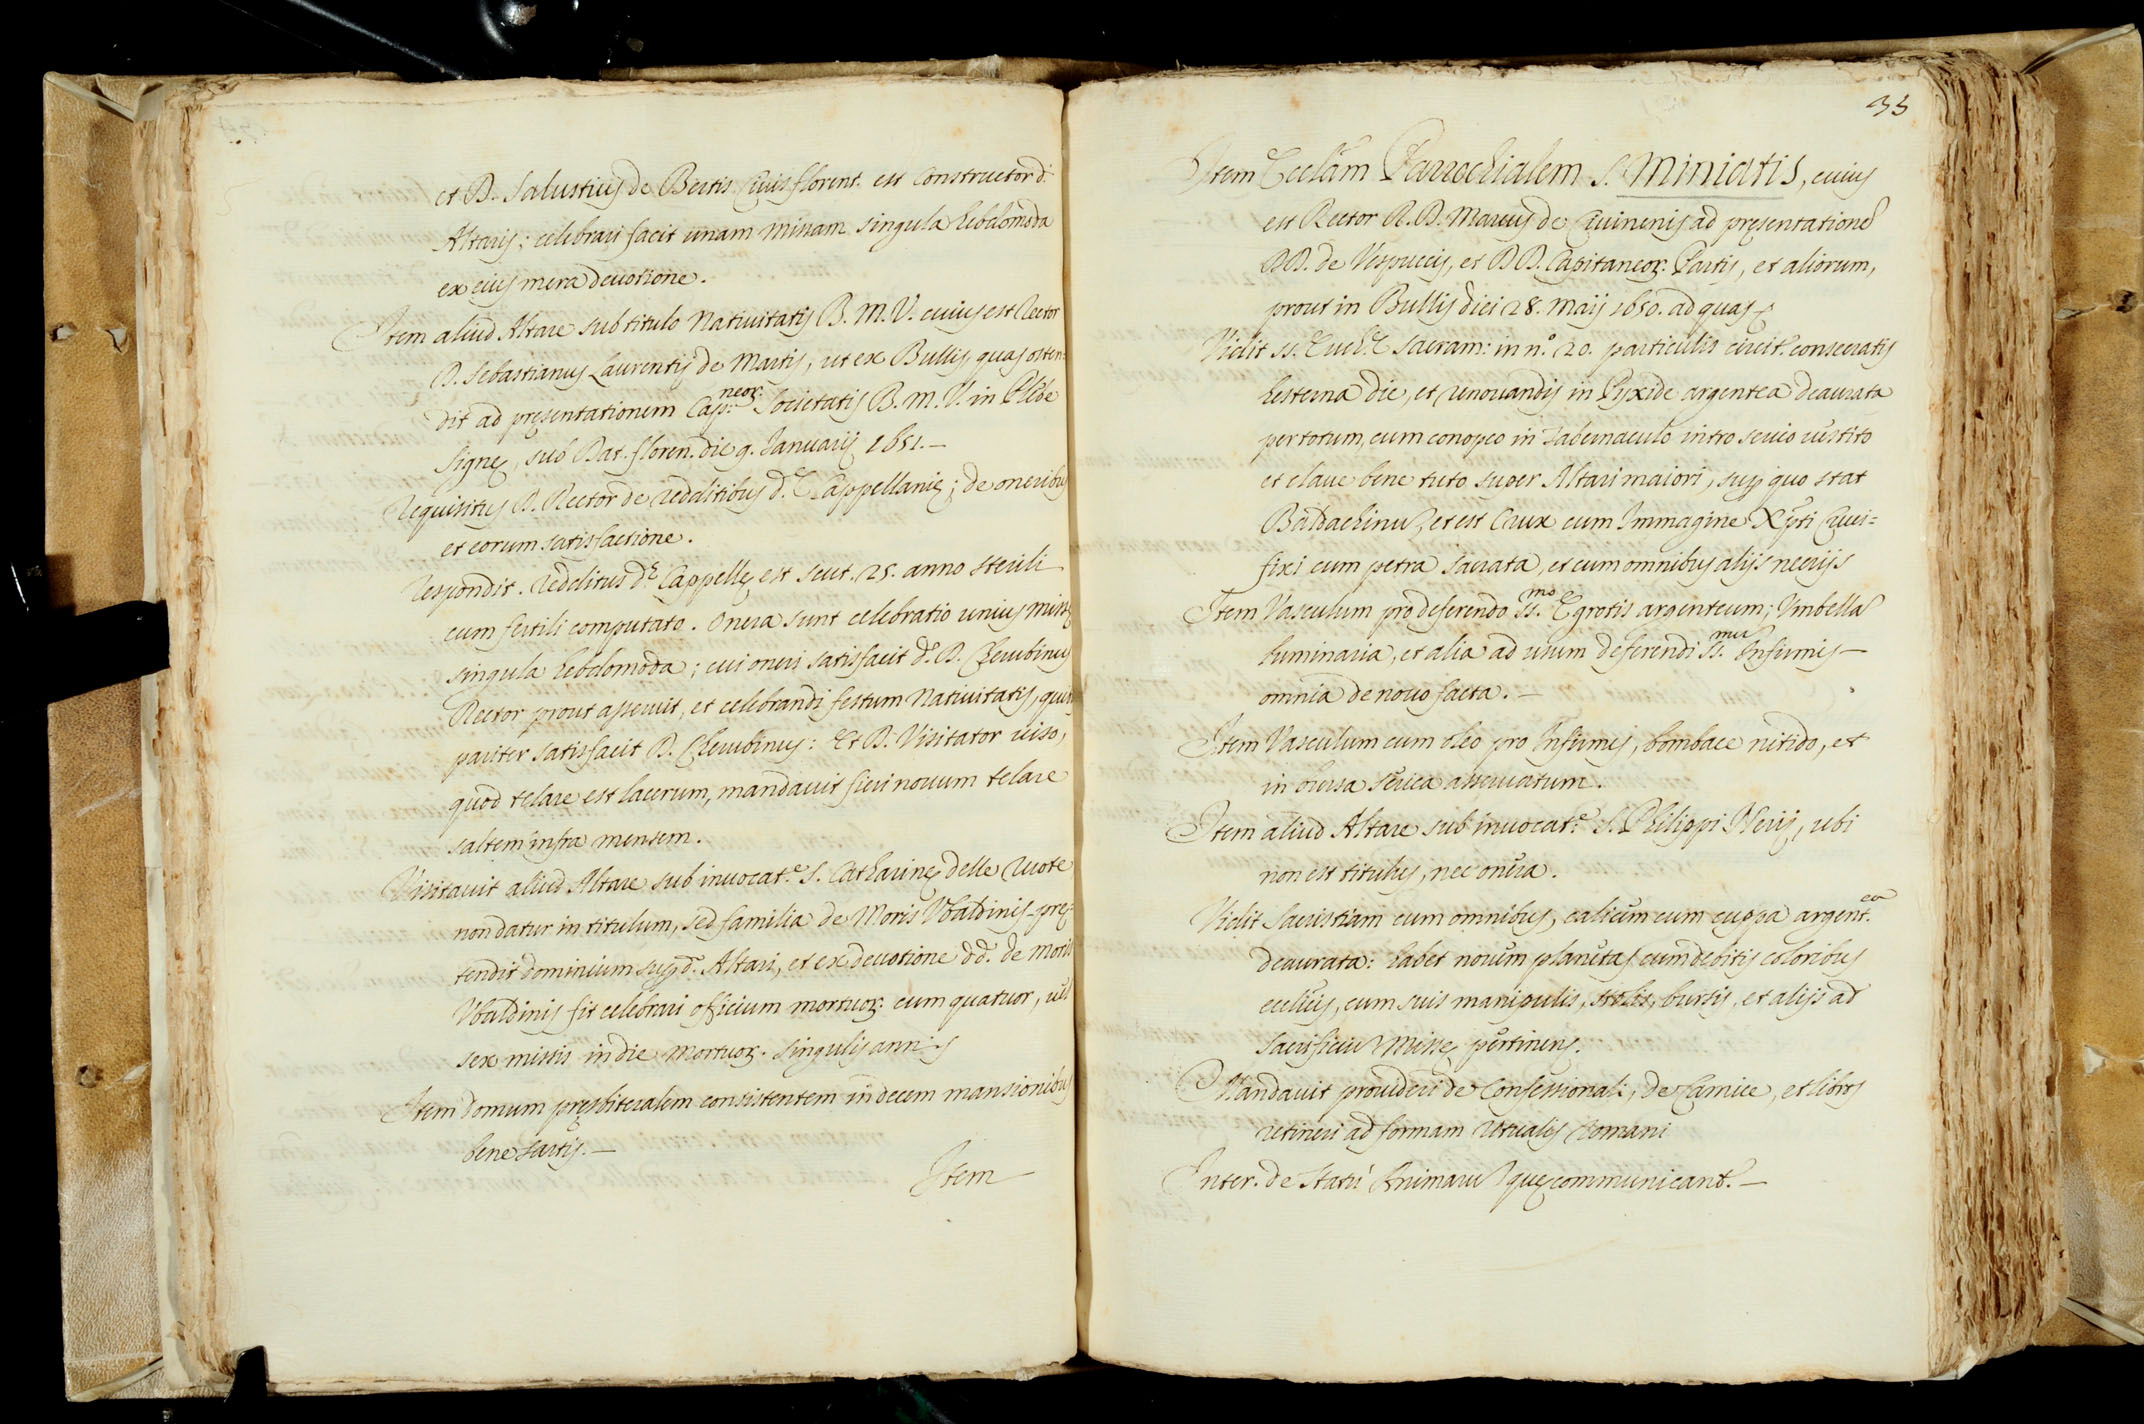 et D. Salustius de Bertis Civis florent. est Constructor d.
Altaris; celebrari facit unam missam singula hebdomada
ex eius mera devotione.
Item aliud Altare sub titulo Nativitatis B. M. V. cuius est Rector
D. Sebastianus Laurentij de Martis, ut ex Bullis, quas osten:
dit ad presentationem Cap:neor: Societatis B. M. V. in Plebe
Signe, sub Dat. floren. die 9. Januarij 1651.—
Requisitus D. Rector de redditibus d.e Cappellanie; de oneribus
et eorum satisfactione.
Respondit. redditus d.e Cappelle est scut. 25. anno sterili
cum fertili computato. Onera sunt celebratio unius misse
singula hebdomoda; cui oneri satisfacit d. D. Cherubinus
Rector prout asseruit, et celebrandi festum Nativitatis, quum
pariter satisfacit D. Cherubinus: Et D. Visitator viso,
quod telare est lacerum, mandavit fieri novum telare
saltem infra mensem.
Visitavit aliud Altare sub invocat.e S. Catharine delle Ruote
non datur in titulum, sed familia de Moris Vbaldinis pre:
tendit dominium sup. d. Altari, et ex devotione dd. de Moris
Vbaldinis fit celebrari officium mortuor: cum quatuor, vel
sex missis in die Mortuor. singulis annis
Item domum presbiteralem consistentem in decem mansionibus
bene sartis.—
Item
33
Item Eccl̃am Parrochialem S. Miniatis, cuius
est Rector R. D. Marcus de Civinenis ad presentatione
DD. de Vespuccis, et DD. Capitaneor: Partis, et aliorum,
prout in Bullis diei 28. Maij 1650. ad quas
Vidit ss. Euch.e Sacram: in n.o 20. particulis circit. consecratis
hesterna die, et renovandis in Pyxide argentea deaurata
per totum, cum conopeo in Tabernaculo intro serico vestito
et clave bene tuto super Altari maiori, sup. quo stat
Baldachinu, et est Crux cum Immagine Xp̃ti Cruci=
fixi cum petra sacrata, et cum omnibus alijs necrijs
Item Vasculum pro deferendo ss.mo Egrotis argenteum; Vmbella
luminaria, et alia ad usum deferendi ss.mu Infirmis—
omnia de novo facta.—
Item Vasculum cum oleo pro Infirmis, bombace nitido, et
in bursa serica asservatum.
Item aliud Altare sub invocat.e S. Philippi Nerij, ubi
non est titulus, nec onera.
Vidit Sacristiam cum omnibus, calicem cum cuppa argent.ea
deaurata: habet novem planetas cum debitis coloribus
ecclius, cum suis manipulis, stolis, bursis, et alijs ad
Sacrificiu Misse pertinens.
Mandavit provideri de Confessionali, de Camice, et libros
retineri ad formam Ritualis Romani
Inter. de Statu Animaru que communicant.—